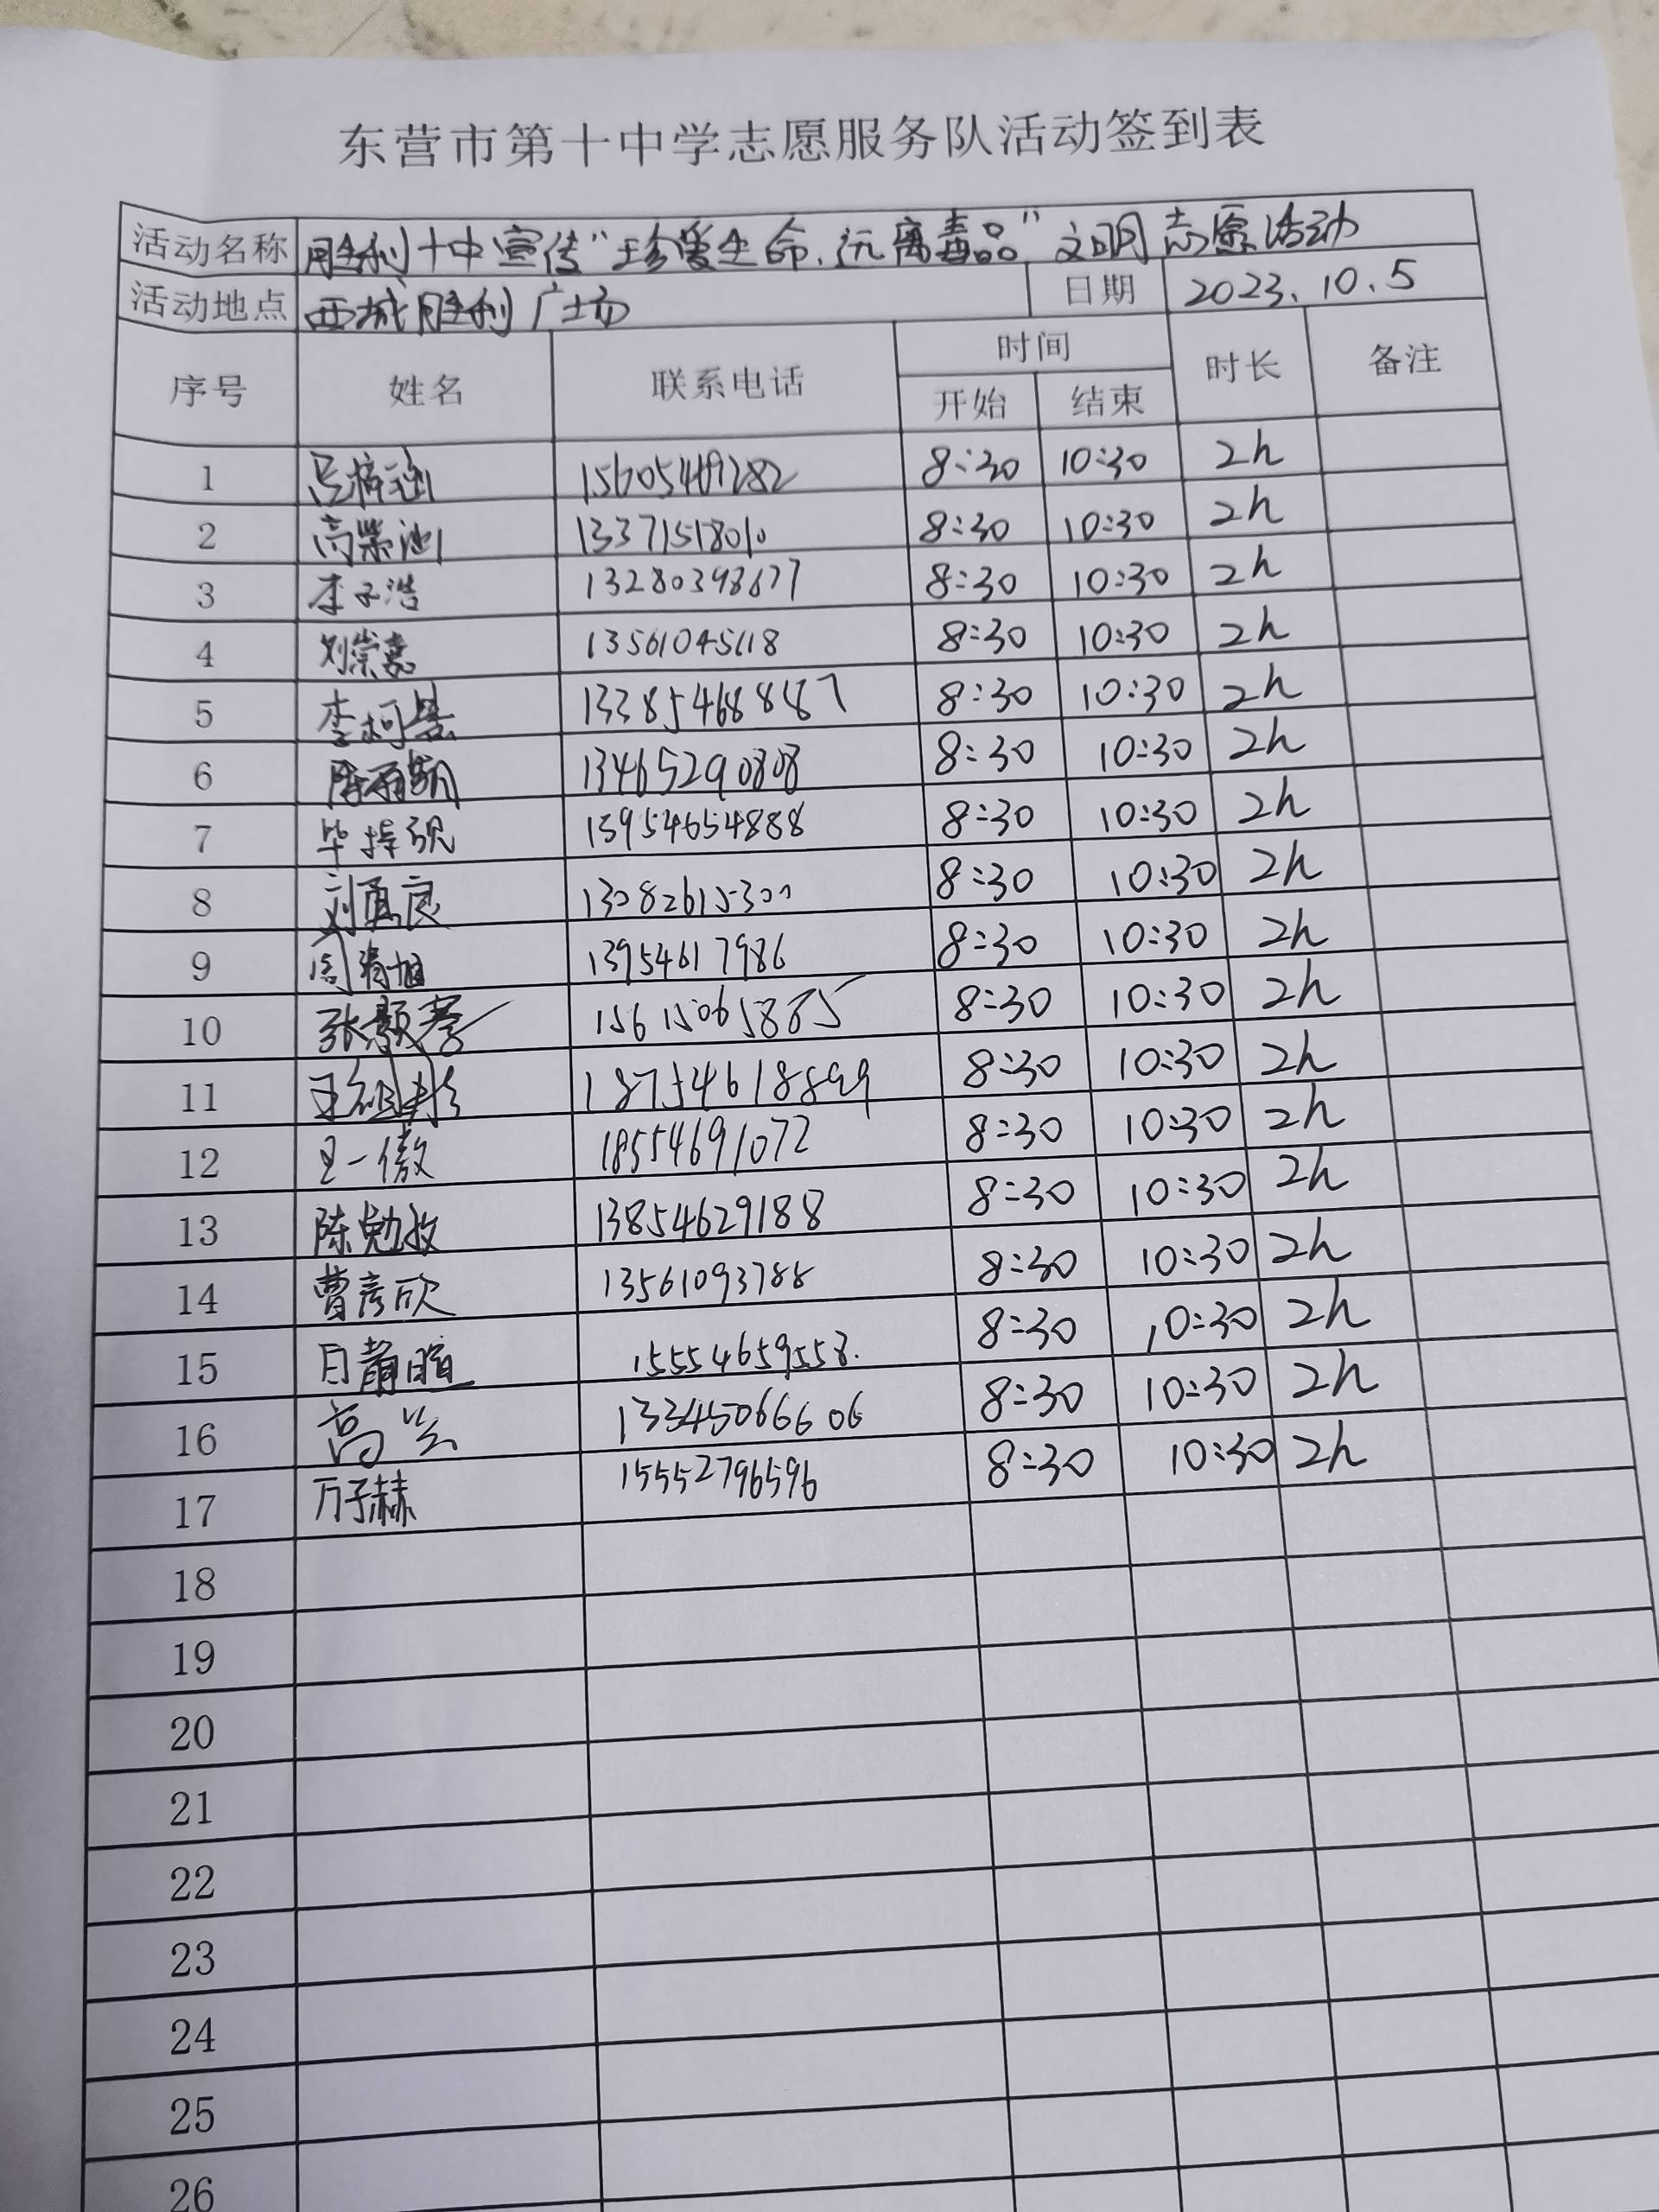 东营市第十中学志愿服务队活动签到表
活动名称 胜利十中宣传"珍爱生命,远离毒品"文明志愿活动
活动地点 西城胜利广场 日期 2023.10.5
序号 姓名 联系电话 时间 时长 备注
开始 结束
1 15605469282 8:30 10:30 2h
2 13371518010 8:30 10:30 2h
3 李子浩 13280398677 8:30 10:30 2h
4 刘崇嘉 13561045118 8:30 10:30 2h
5 8:30 10:30 2h
6 13465290808 8:30 10:30 2h
7 13954654888 8:30 10:30 2h
8 13082615300 8:30 10:30 2h
9 13954617986 8:30 10:30 2h
10 15615065885 8:30 10:30 2h
11 18754618899 8:30 10:30 2h
12 王一傲 18554691072 8:30 10:30 2h
13 陈勉孜 13854629188 8:30 10:30 2h
14 曹彦欣 13561093788 8:30 10:30 2h
15 15554659558. 8:30 10:30 2h
16 高兴 13345066606 8:30 10:30 2h
17 万子赫 15552796596 8:30 10:30 2h
18
19
20
21
22
23
24
25
26